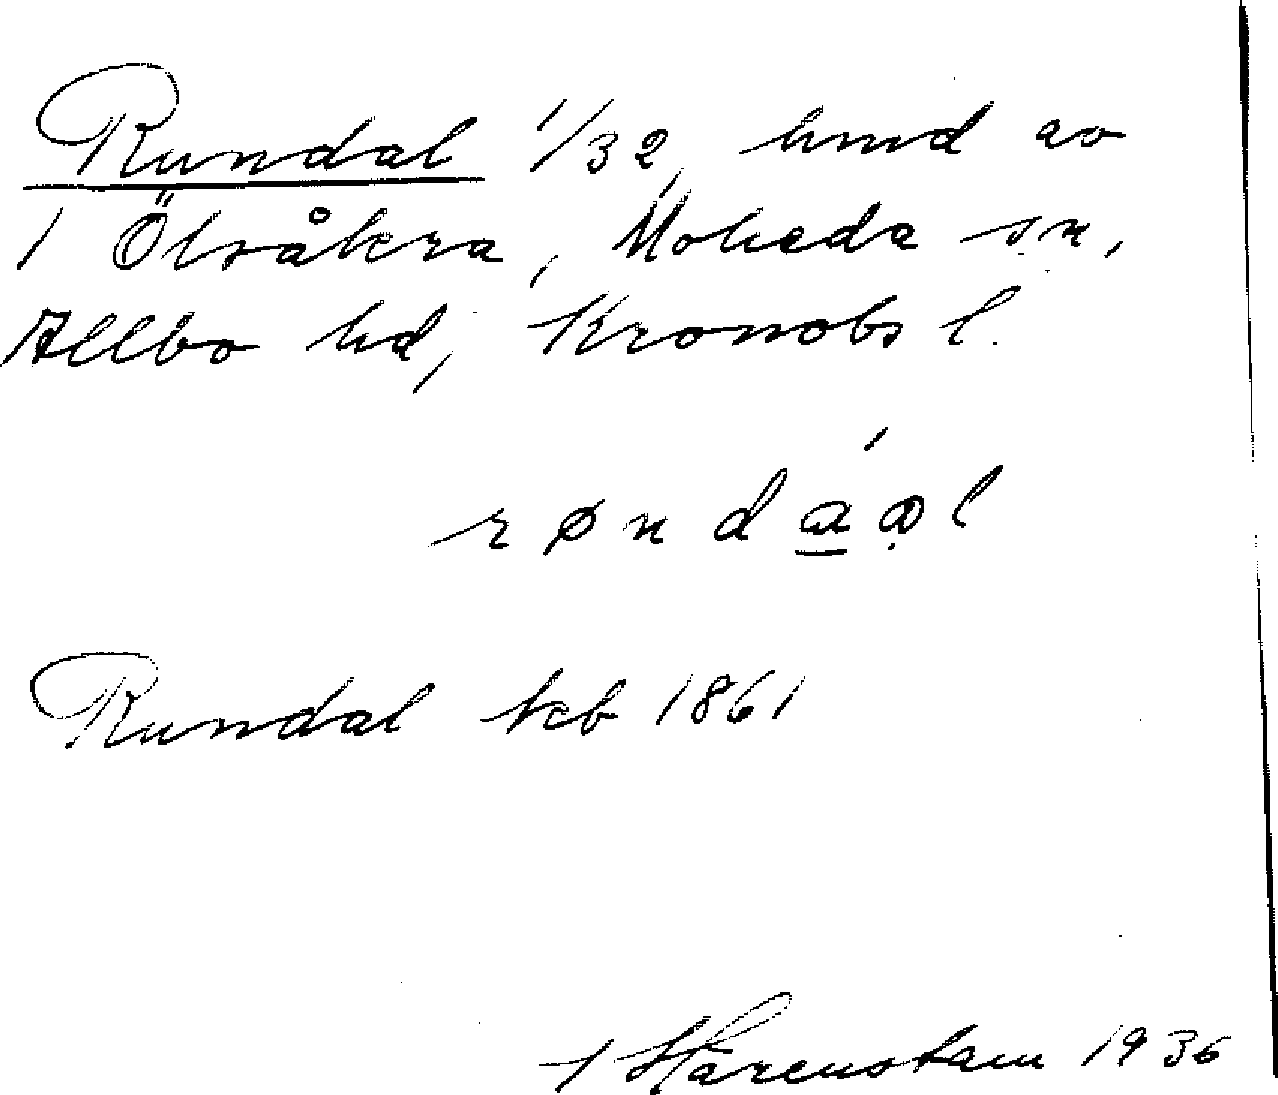 Rundal 1/32, hmd av
1 Ölvåkra, Moheda sn,
Allbo hd, Kronobs l.
rønda̲ạ́l
Rundal kcb 1861
Härenstam 1936